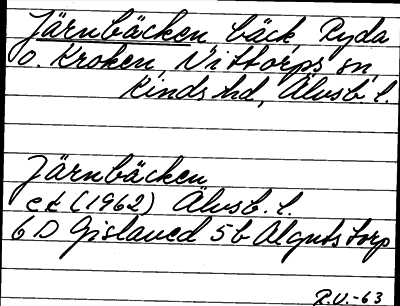 Järnbäcken, bäck, Ryda
o. Kroken, Vittorps sn
Kinds hd, Älvsb. l.
Järnbäcken
ek (1962) Älvsb. l.
6 D Gislaved 5b Algutstorp
R.U.-63